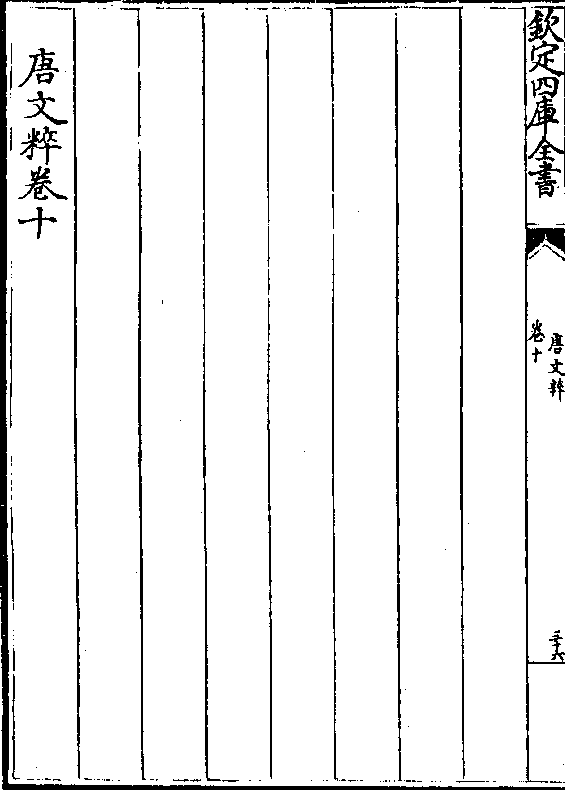 欽定四庫全書
唐文粹
卷十
三十六
唐文粹卷十